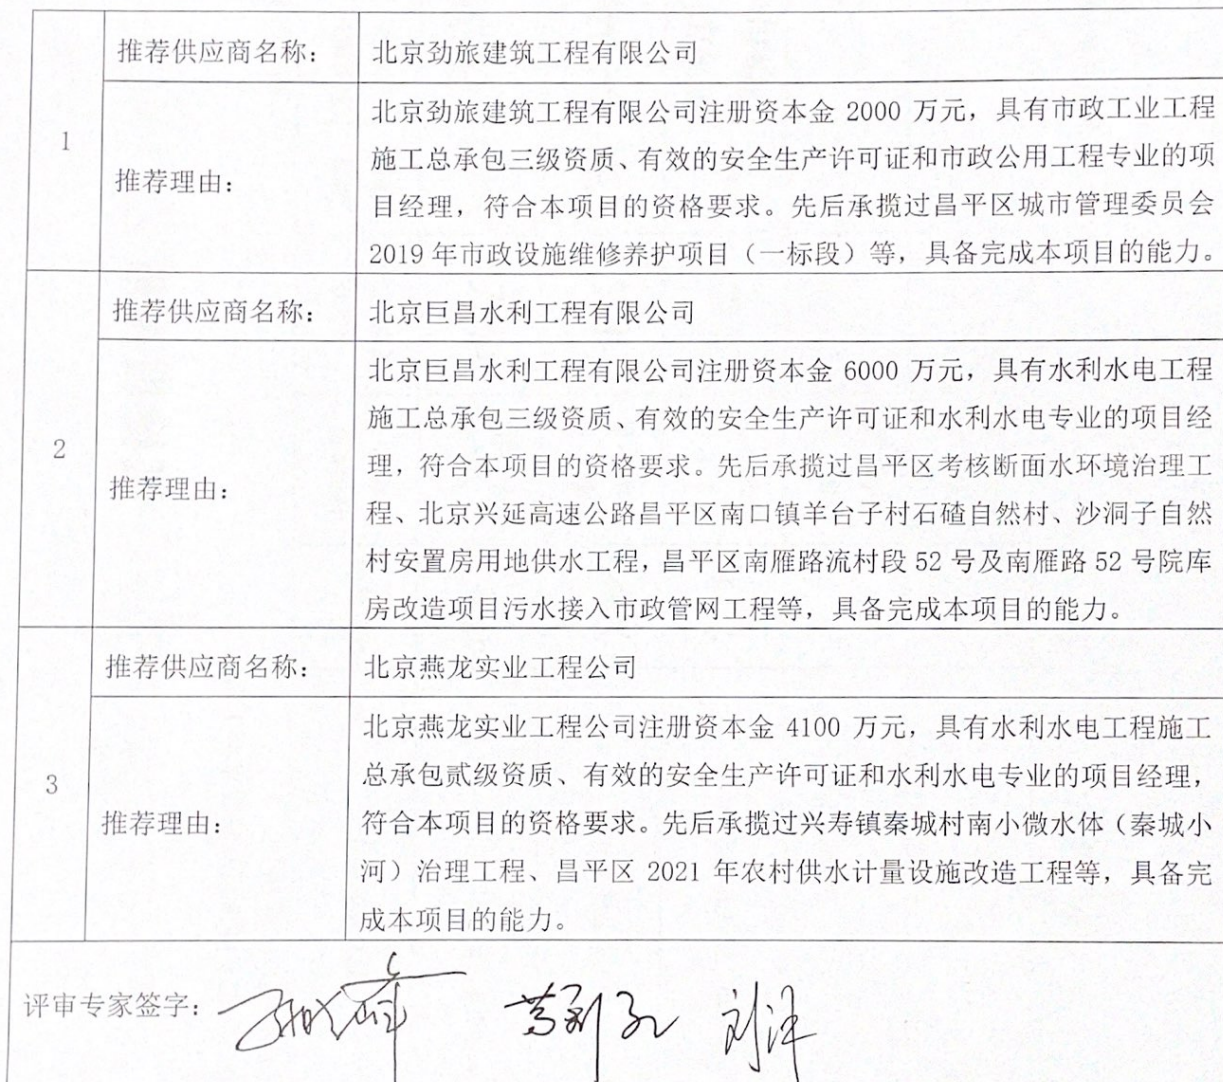 1
推荐供应商名称：
北京劲旅建筑工程有限公司
推荐理由：
北京劲旅建筑工程有限公司注册资本金 2000 万元，具有市政工业工程
施工总承包三级资质、有效的安全生产许可证和市政公用工程专业的项
目经理，符合本项目的资格要求。先后承揽过昌平区城市管理委员会
2019 年市政设施维修养护项目（一标段）等，具备完成本项目的能力。
2
推荐供应商名称：
北京巨昌水利工程有限公司
推荐理由：
北京巨昌水利工程有限公司注册资本金 6000 万元，具有水利水电工程
施工总承包三级资质、有效的安全生产许可证和水利水电专业的项目经
理，符合本项目的资格要求。先后承揽过昌平区考核断面水环境治理工
程、北京兴延高速公路昌平区南口镇羊台子村石碴自然村、沙洞子自然
村安置房用地供水工程，昌平区南雁路流村段 52 号及南雁路 52 号院库
房改造项目污水接入市政管网工程等，具备完成本项目的能力。
3
推荐供应商名称：
北京燕龙实业工程公司
推荐理由：
北京燕龙实业工程公司注册资本金 4100 万元，具有水利水电工程施工
总承包贰级资质、有效的安全生产许可证和水利水电专业的项目经理，
符合本项目的资格要求。先后承揽过兴寿镇秦城村南小微水体（秦城小
河）治理工程、昌平区 2021 年农村供水计量设施改造工程等，具备完
成本项目的能力。
评审专家签字：